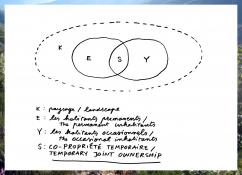 K
E S Y
K : paysage / landscape
E : les habitants permanents /
The permanent inhabitants
Y : les habitants occasionnels /
The occasional inhabitants
S : CO-PROPRIÉTÉ TEMPORAIRE /
TEMPORARY JOINT OWNERSHIP